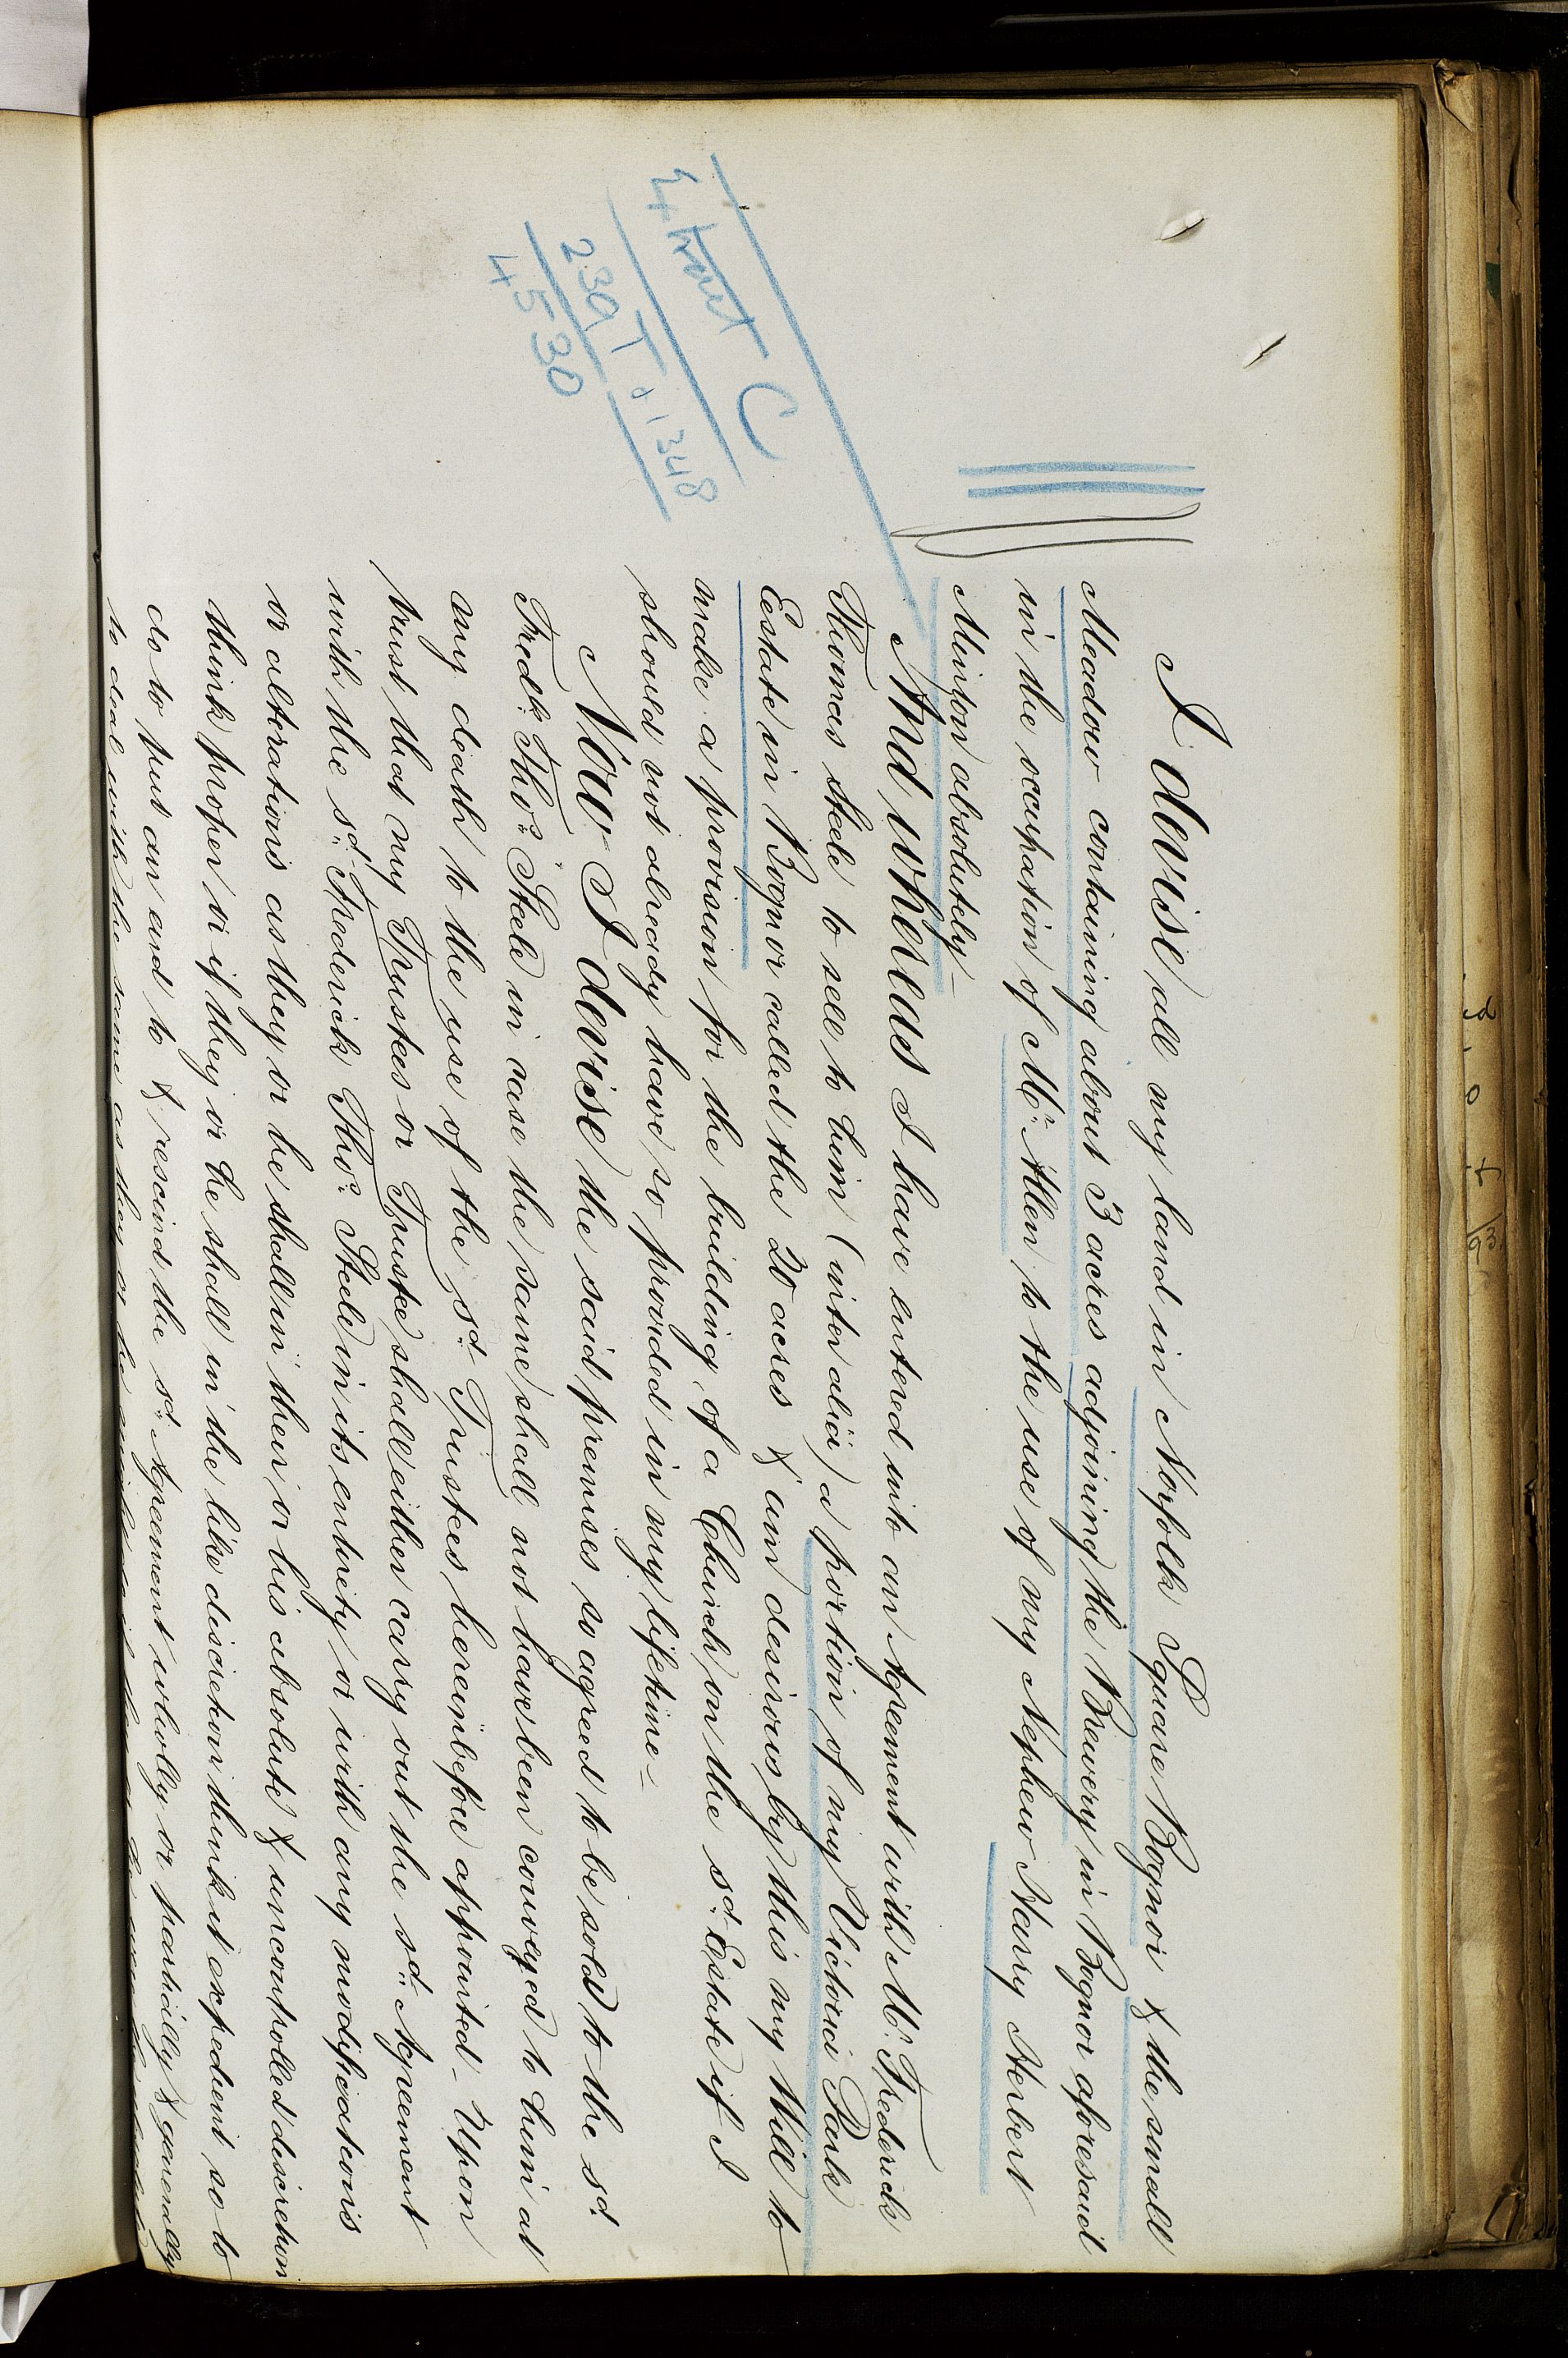 I devise all my land in Norfolk Square Bognor & the small
Meadow containing about 3 acres adjoining the Brewery in Bognor aforesaid
in the occupation of Mr. Allen to the use of my Nephew Harry Herbert
Minton absolutely—
And whereas I have entered into an Agreement with Mr. Frederick
Thomas Steele to sell to him (inter alia) a portion of my Victoria Park
Estate in Bognor called the 20 acres & am desirous by this my Will to
make a provision for the building of a Church on the sd. Estate if I
should not already have so provided in my lifetime—
Now I devise the said premises so agreed to be sold to the sd.
Fredk. Thos. Steele in case the same shall not have been conveyed to him at
my death to the use of the sd. Trustees hereinbefore appointed— Upon
trust that my Trustees or Trustee shall either carry out the sd. Agreement
with the sd. Frederick Thos. Steele in its entirety or with any modifications
or alterations as they or he shall in their or his absolute & uncontrolled discretion
think proper or if they or he shall in the like discretion think it expedient so to
do to put an end to & rescind the sd. Agreement wholly or partially & generally
to deal with the same as they or he
Extract C
239 T d 1348
45 30